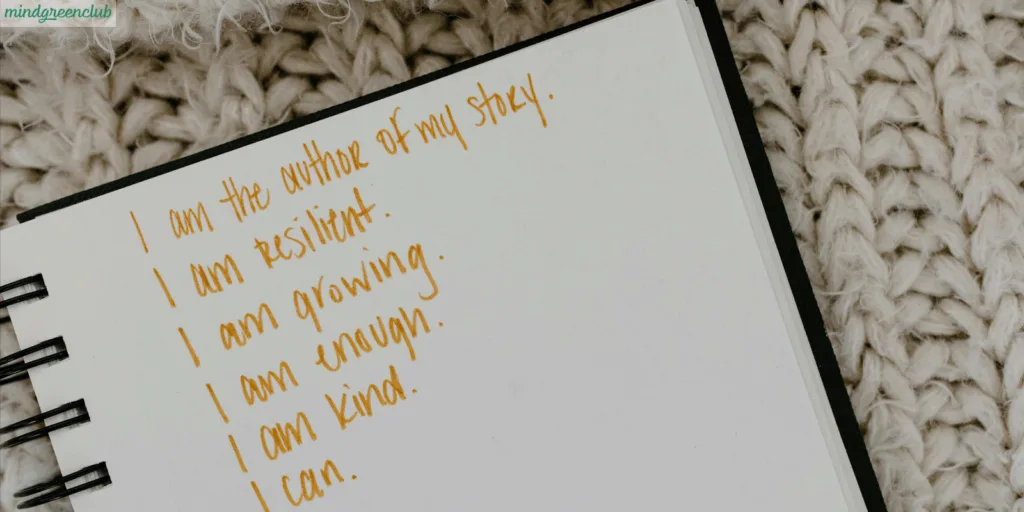 mindgreenclub
I am the author of my story.
I am resilient.
I am growing.
I am enough.
I am kind.
I can.